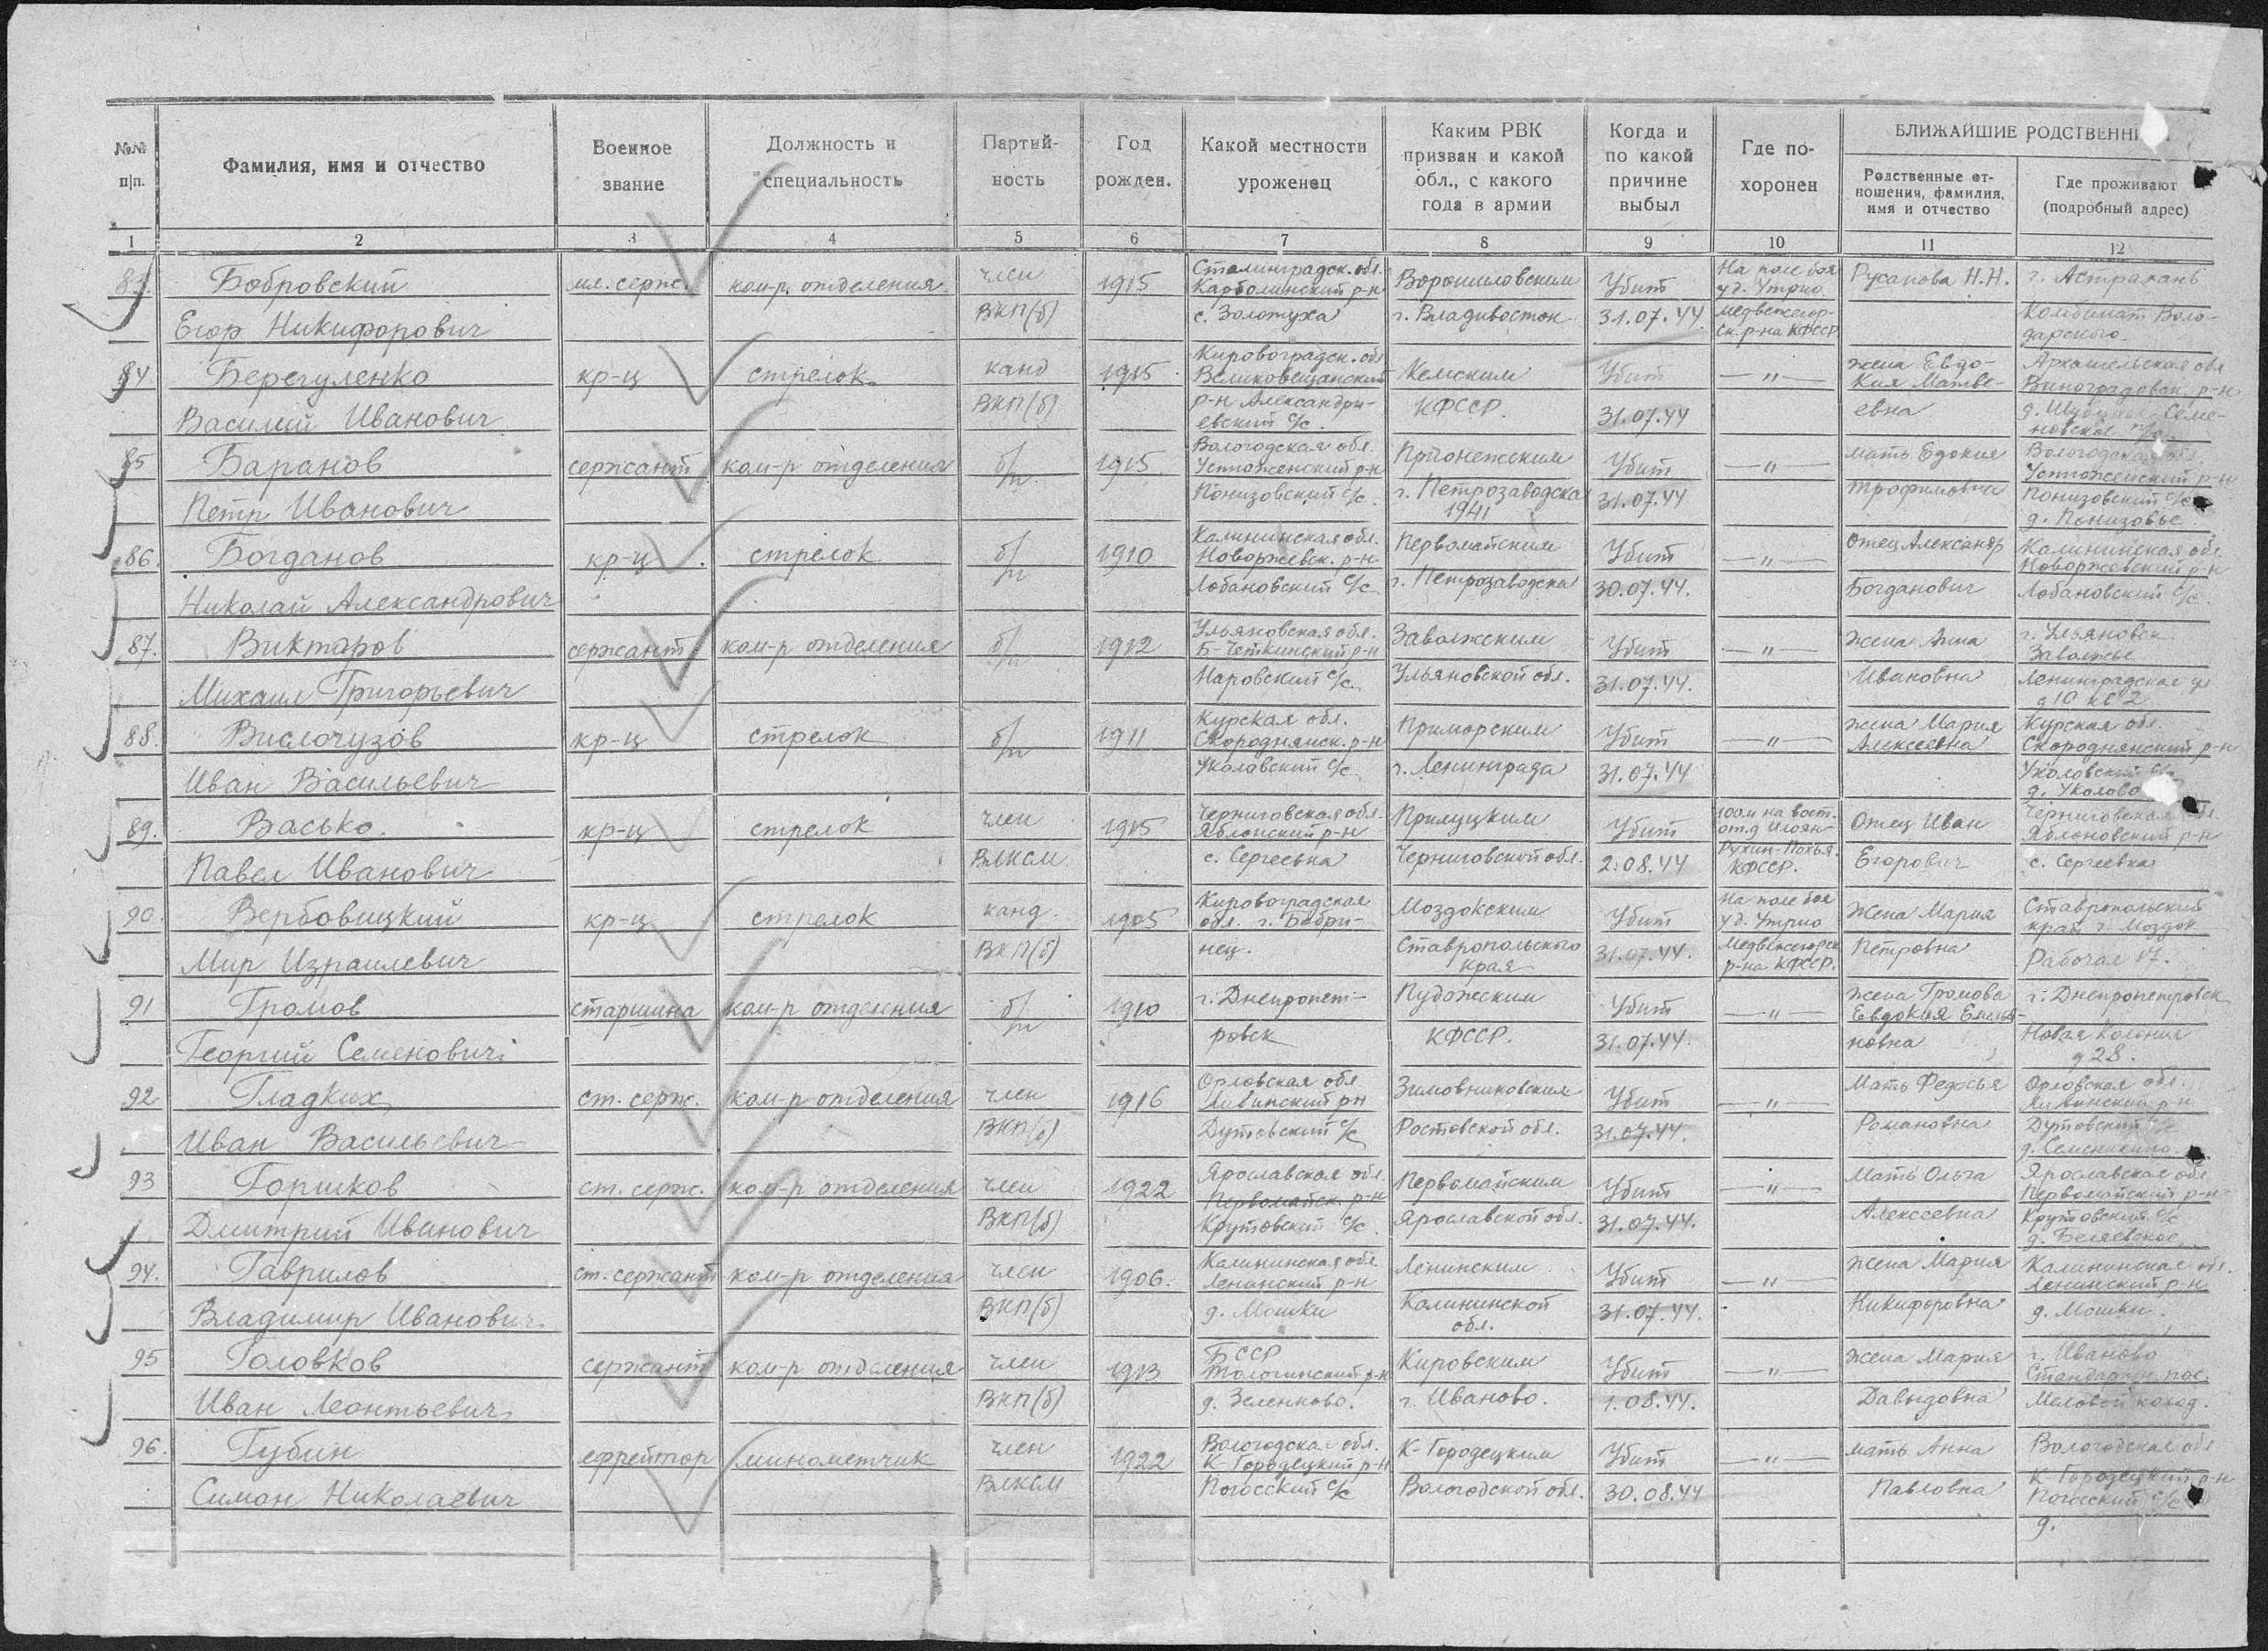 №№ п/п.
Фамилия, имя и отчество
Военное звание
Должность и специальность
Партий-ность
Год рожден.
Какой местности уроженец
Каким РВК призван и какой обл., с какого года в армии
Когда и по какой причине выбыл
Где по-хоронен
БЛИЖАЙШИЕ РОДСТВЕННИ
Родственные от-ношения, фамилия, имя и отчество
Где проживают (подробный адрес)
1 2 3 4 5 6 7 8 9 10 11 12
Бобровский мл. серж. ком-р. отделения член 1915 Сталинградск. обл. Ворошиловским Убит На поле боя Русанова Н.Н. г. Астрахань
Егор Никифорович ВКП(б) с. Золотуха г. Владивосток 31.07.44 у д. Утрио Медвежегор-ск. р-на КФССР Комбинат Воло-дарского.
84 Берегуленко кр-ц стрелок канд 1915 Кировоградск. обл Кемским Убит —"— жена Евдо-кия Матве- Архангельская обл
Василий Иванович ВКП(б) р-н Александри-евский с/с. КФССР. 31.07.44 евна Виноградовск. р-н
85 Баранов сержант ком-р отделения б/п 1915 Вологодская обл. Устюженский р-н Прионежским Убит —"— мать Вологодская обл. Устюженский р-н
Петр Иванович Понизовский с/с. г. Петрозаводска 1941 31.07.44 Понизовский с/с д. Понизовье
86. Богданов кр-ц стрелок б/п 1910 Калининская обл. Новоржевск. р-н Первомайским Убит —"— отец Александр Калининская обл. Новоржевский р-н
Николай Александрович Лобановский с/с г. Петрозаводска 30.07.44. Богданович Лобановский с/с.
87. Виктаров сержант ком-р отделения б/п 1912 Ульяновская обл. Заволжским Убит —"— жена Анна г. Ульяновск Заволжье
Михаил Григорьевич Наровский с/с. Ульяновской обл. 31.07.44. Ивановна Ленинградская ул д 10 кв 2
88. Вислочузов кр-ц стрелок б/п 1911 Курская обл. Скороднянск. р-н Приморским Убит —"— жена Мария Алексеевна Курская обл. Скороднянский р-н
Иван Васильевич Уколовский с/с г. Ленинграда 31.07.44 Уколовский с/с д. Уколово
89. Васько. кр-ц стрелок член 1915 Черниговская обл. Яблонский р-н Прилуцким Убит 100м на вост. от д. Отец Иван Черниговская обл. Яблоновский р-н
Павел Иванович ВЛКСМ с. Сергеевка Черниговской обл. 2.08.44 КФССР. Егорович с. Сергеевка
90. Вербовицкий кр-ц стрелок канд. 1905 Кировоградская обл. г. Бобри- Моздокским Убит На поле боя у д. Утрио Жена Мария Ставропольский край г. Моздок
Мир Израилевич ВКП(б) нец. Ставропольского края 31.07.44. Медвежегорск. р-на КФССР. Петровна Рабочая 17.
91 Громов старшина ком-р отделения б/п 1910 г. Днепропет- Пудожским Убит —"— жена Громова Евдокия г. Днепропетровск
Георгий Семенович ровск КФССР. 31.07.44. новна Новая Колония д 28.
92 Гладких ст. серж. ком-р отделения член 1916 Орловская обл Ливинский рн Зимовниковским Убит —"— Мать Федосья Орловская обл. Ливинский р-н
Иван Васильевич ВКП(б) Дутовский с/с Ростовской обл. 31.07.44. Романовна Дутовский с/с
93 Горшков ст. серж. ком-р отделения член 1922 Ярославская обл. Первомайск. р-н Первомайским Убит —"— Мать Ольга Ярославская обл Первомайский р-н
Дмитрий Иванович ВКП(б) Крутовский с/с Ярославской обл. 31.07.44. Алексеевна Крутовский с/с д. Беляевское
94. Гаврилов ст. сержант ком-р отделения член 1906. Калининская обл Ленинский р-н Ленинским Убит —"— жена Мария Калининская обл. Ленинский р-н
Владимир Иванович ВКП(б) д. Мошки Калининской обл. 31.07.44. Никифоровна д. Мошки
95 Головков сержант ком-р отделения член 1913 БССР Толочинский р-н Кировским Убит —"— жена Мария г. Иваново
Иван Леонтьевич ВКП(б) д. Зеленково. г. Иваново. 1.08.44. Давыдовна
96. Губин ефрейтор минометчик член 1922 Вологодская обл. К-Городецкий р-н К-Городецким Убит —"— мать Анна Вологодская обл К-Городецкий р-н
Симон Николаевич ВЛКСМ Погосский с/с Вологодской обл. 30.08.44 Павловна Погосский с/с
д.